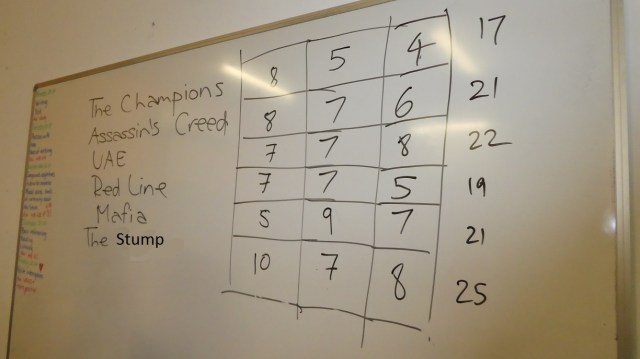 The Champions 8 5 4 17
Assassin's Creed 8 7 6 21
UAE 7 7 8 22
Red Line 7 7 5 19
Mafia 5 9 7 21
The Stump 10 7 8 25